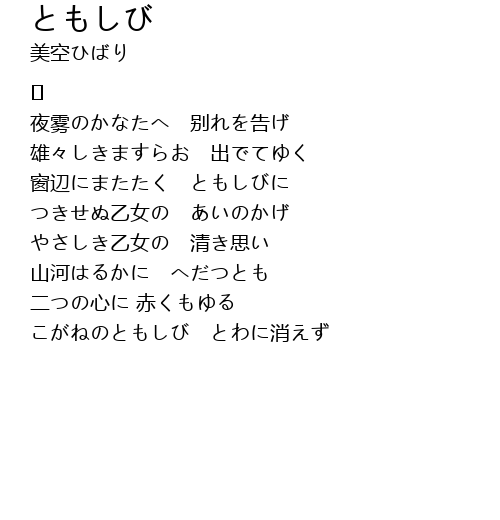 ともしび
美空ひばり
夜雾のかなたへ　别れを告げ
雄々しきますらお　出でてゆく
窗辺にまたたく　ともしびに
つきせぬ乙女の　あいのかげ
やさしき乙女の　清き思い
山河はるかに　へだつとも
二つの心に 赤くもゆる
こがねのともしび　とわに消えず